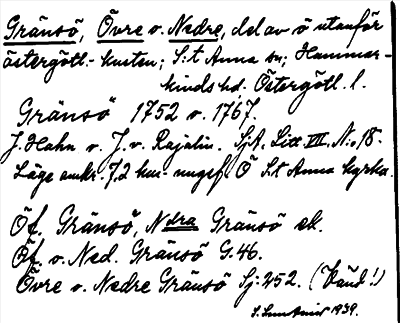 Gränsö, Övre o. Nedre, del av ö utanför
östergötl.-kusten; S:t Anna sn; Hammar-
kinds hd. Östergötl. l.
Gränsö 1752 o. 1767.
J. Hahn o. J. v. Rajalin. SjA. Litt. VII. N:o 18.
Läge omkr. 7,2 km. ungef. Ö S:t Anna kyrka.
Öf. Gränsö, Ndra Gränsö ek.
Öf. o. Ned. Gränsö G. 46.
Övre o. Nedre Gränsö Sj: 252. (Känd!)
1939.